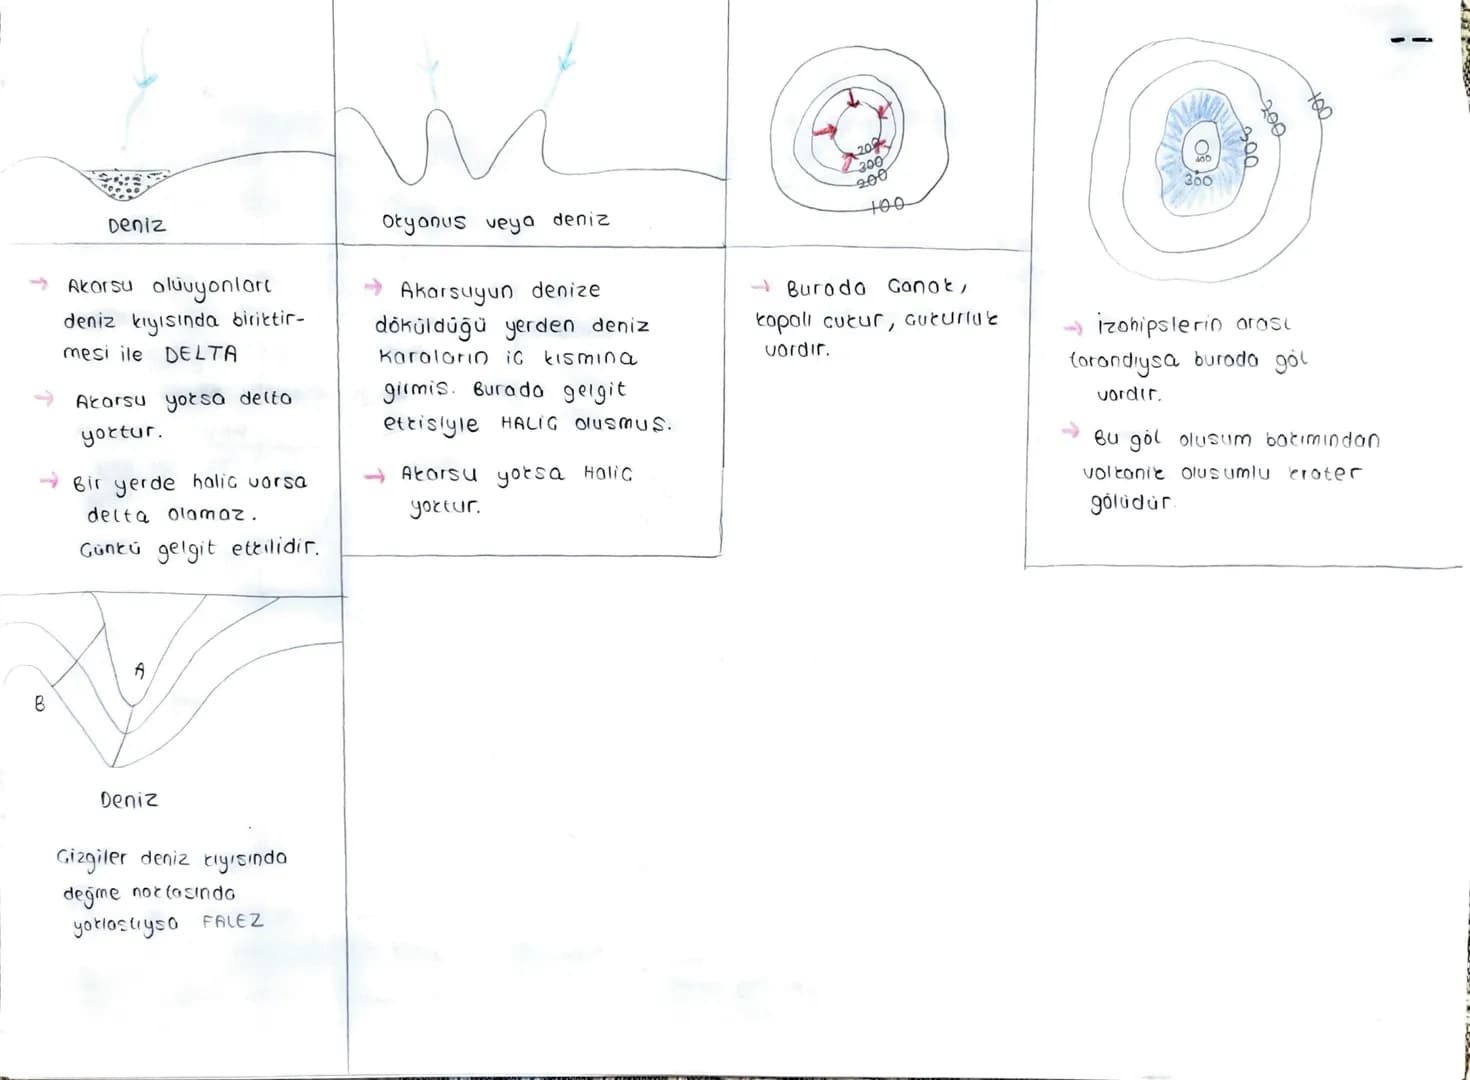 Deniz
Akarsu alüvyonları
deniz kıyısında biriktir-
mesi ile DELTA
Akarsu yoksa delta
yoktur.
Bir yerde haliç varsa
delta olamaz.
Çünkü gelgit etkilidir.
Okyanus veya deniz
Akarsuyun denize
döküldüğü yerden deniz
karaların iç kısmına
girmiş. Burada gelgit
etkisiyle HALİÇ oluşmuş.
Akarsu yoksa Haliç
yoktur.
200
300
200
100
Burada Çanak,
kapalı çukur, çukurluk
vardır.
100
200
300
400
300
İzohipslerin arası
tarandıysa burada göl
vardır.
Bu göl oluşum bakımından
volkanik oluşumlu krater
gölüdür.
A
B
Deniz
Çizgiler deniz kıyısında
değme noktasında
yaklaştıysa FALEZ